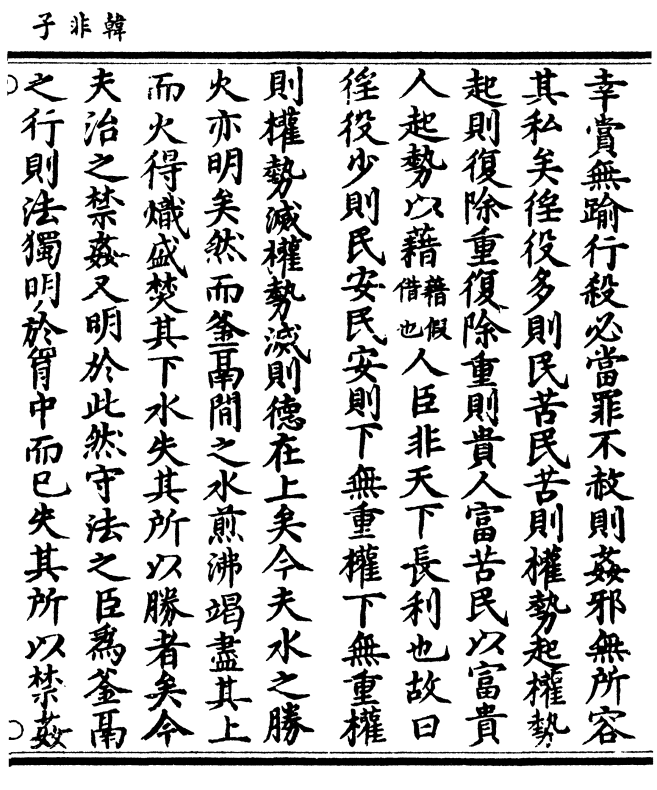 韓非子
幸賞無踰行殺必當罪不赦則姦邪無所容
其私矣徭役多則民苦民苦則權勢起權勢
起則復除重復除重則貴人富苦民以富貴
人起勢以藉藉假借也人臣非天下長利也故曰
徭役少則民安民安則下無重權下無重權
則權勢滅權勢滅則德在上矣今夫水之勝
火亦明矣然而釜鬲間之水煎沸竭盡其上
而火得熾盛焚其下水失其所以勝者矣今
夫治之禁姦又明於此然守法之臣爲釜鬲
之行則法獨明於胷中而已失其所以禁姦